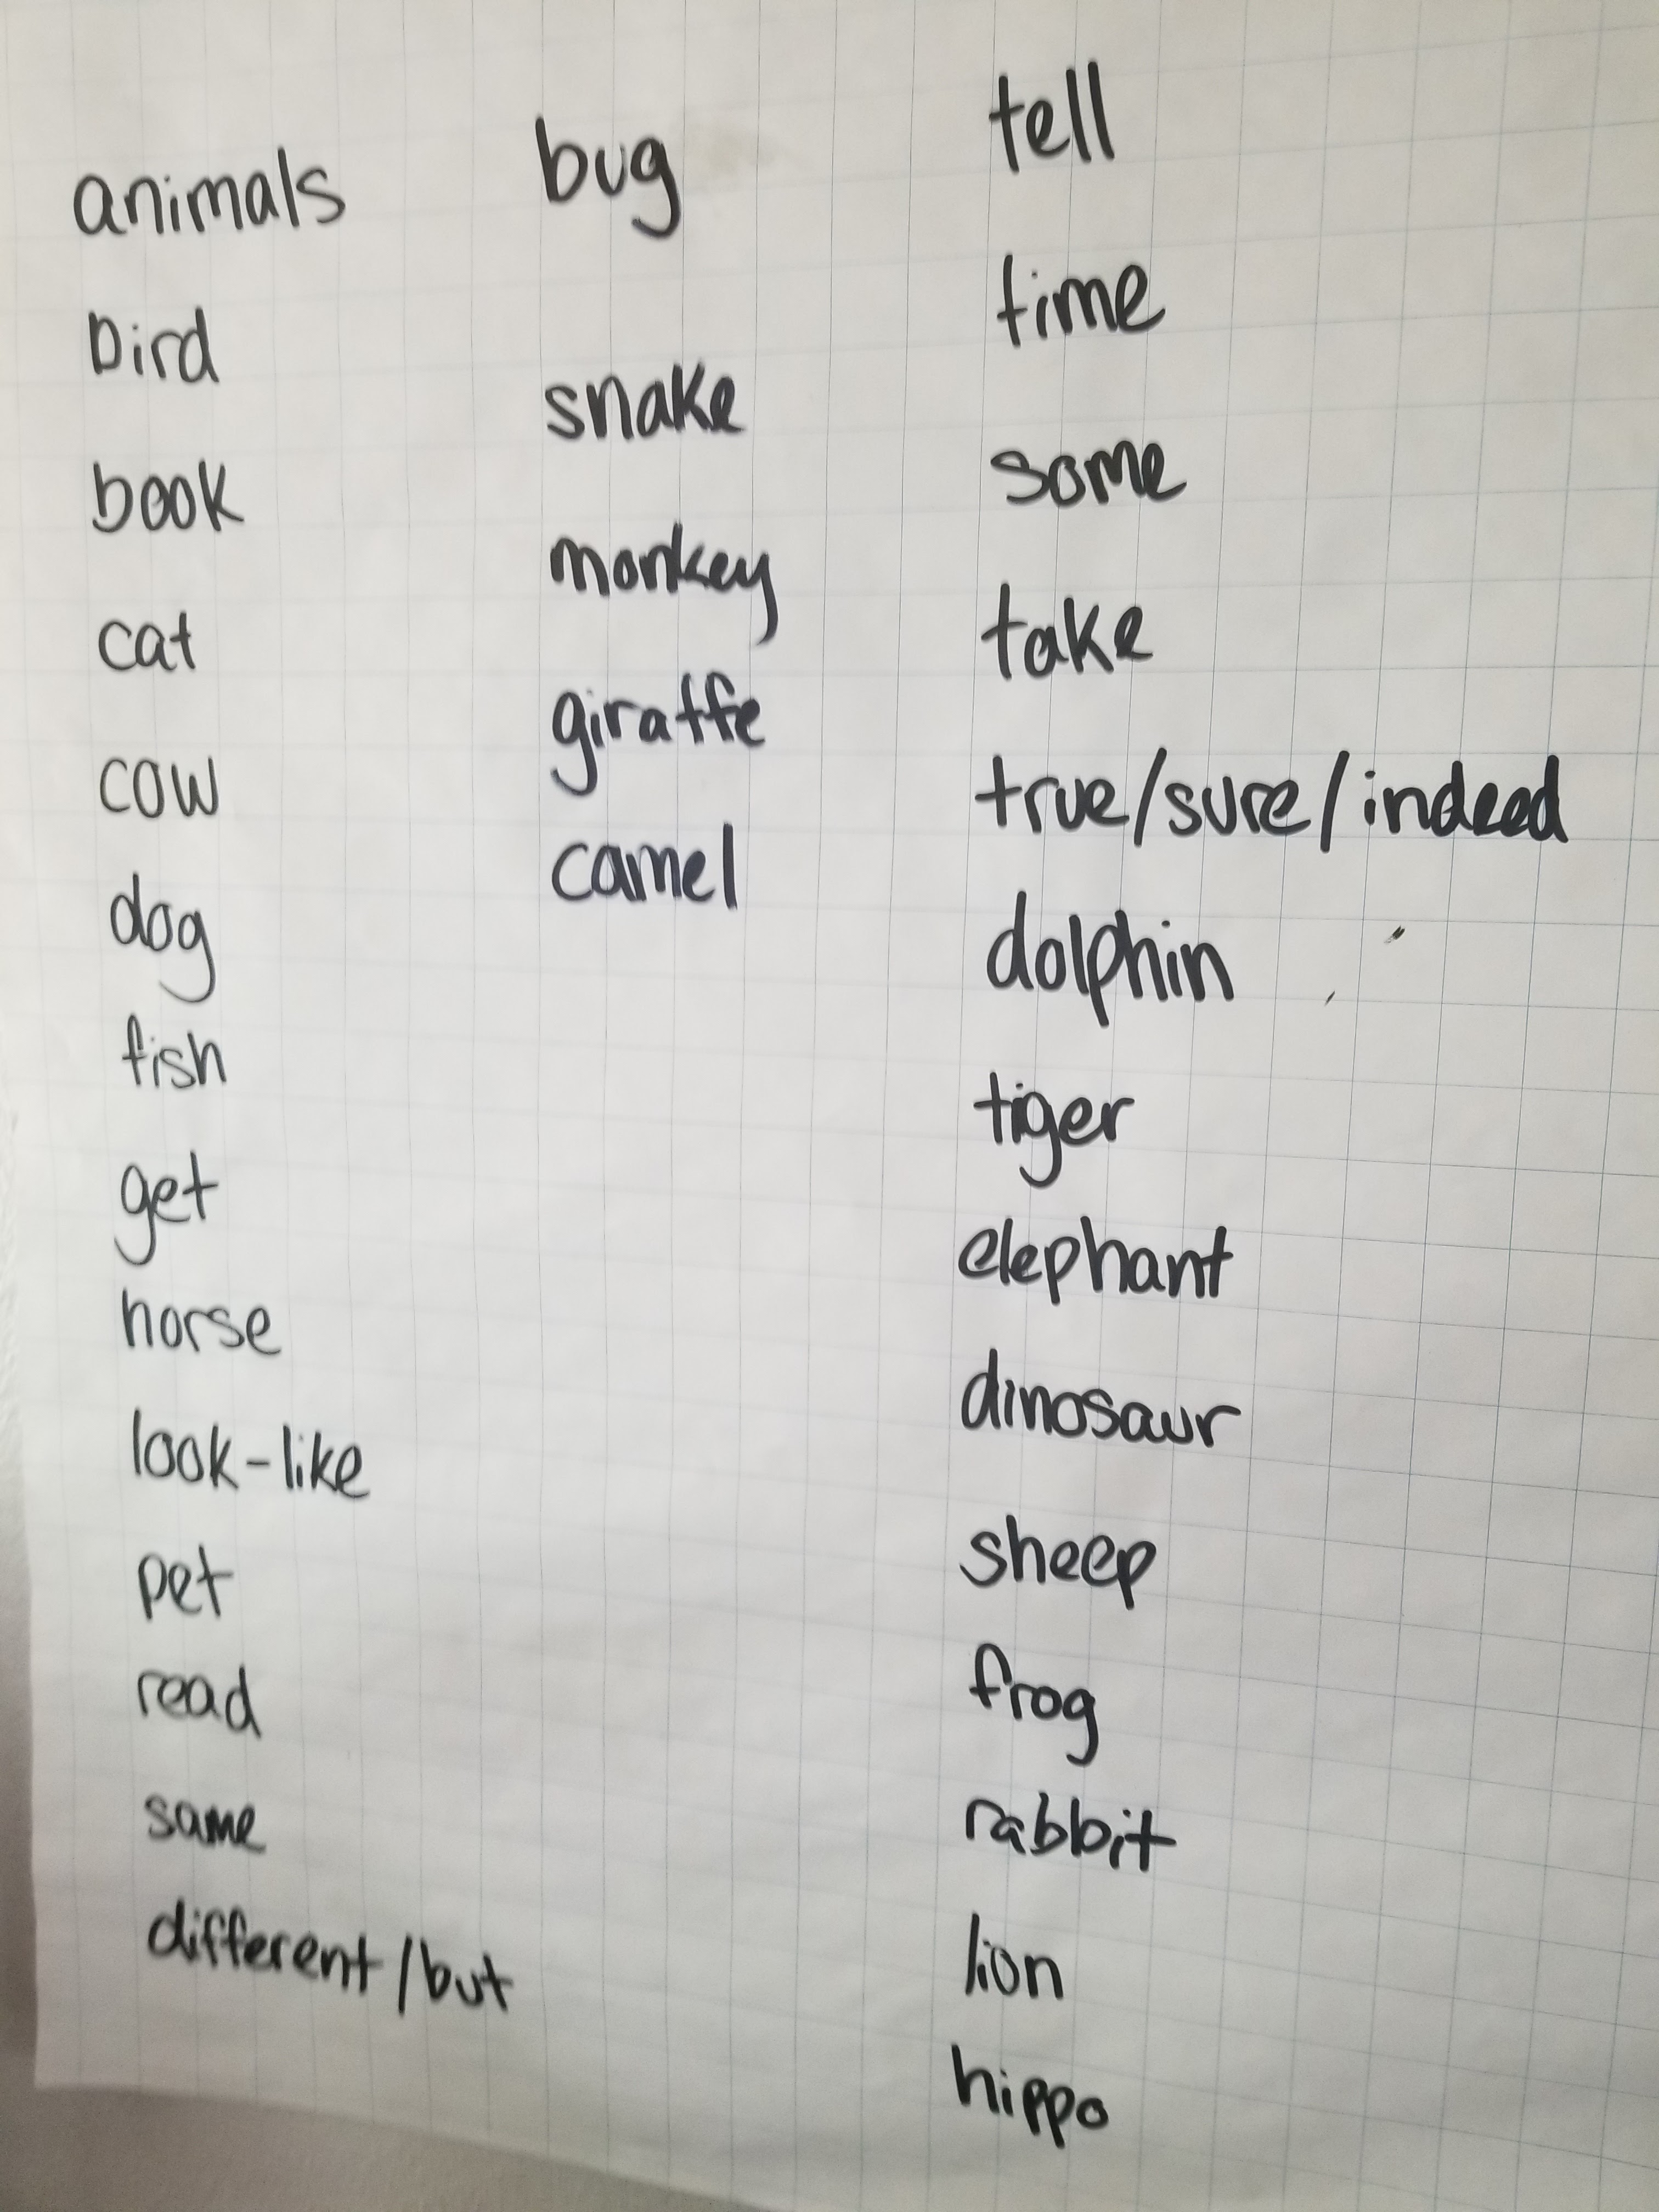 animals
bird
book
cat
cow
dog
fish
get
horse
look-like
pet
read
same
different/but
bug
snake
monkey
giraffe
camel
tell
time
some
take
true/sure/indeed
dolphin
tiger
elephant
dinosaur
sheep
frog
rabbit
lion
hippo